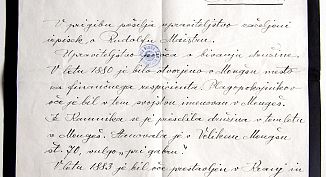 V prigibu pošilja upraviteljstvo zaželjeni
izpisek, o Rudolfu Maistru.
Upraviteljstvo bivanja družine.
V letu 1880 je bilo otvorjeno v Mengšu mesto
finančnega respicienta.
oče je bil v tem svojstvu imenovan v Mengeš.
Iz Kamnika se je preselila družina v tem letu
v Mengeš. Stanovala je v Velikem Mengšu
št. 71, vulgo „pri gaberu".
V letu 1883 je bil oče prestavljen v Kranj in